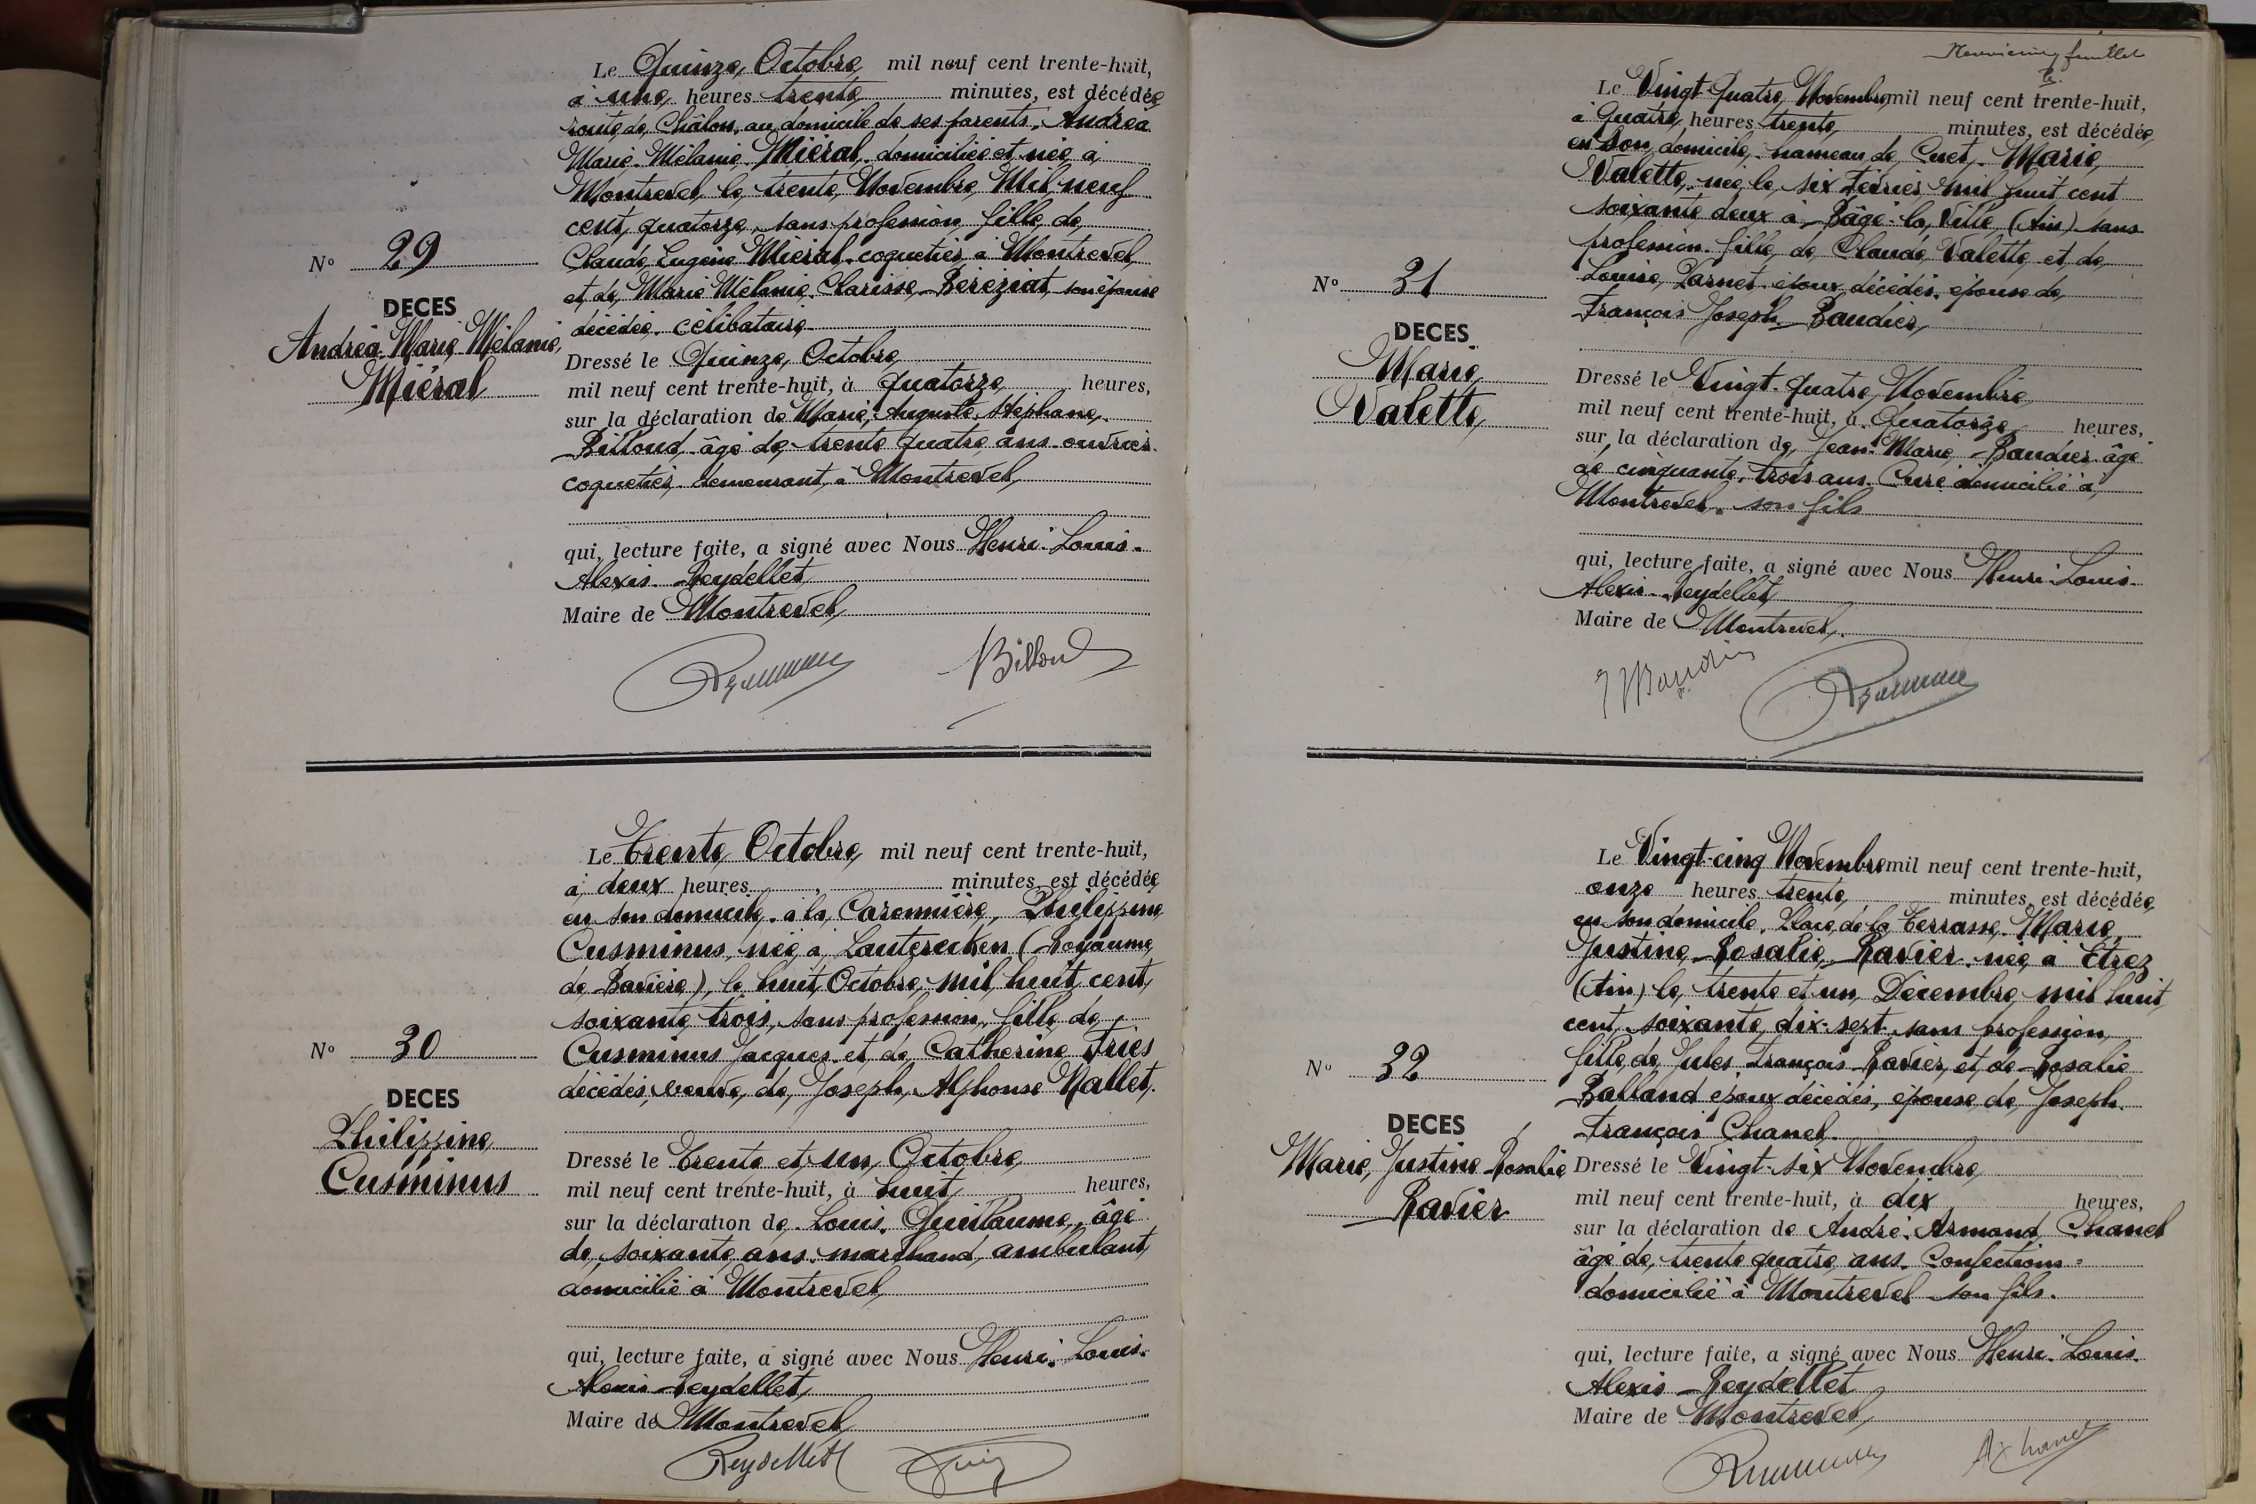 Le Quinze Octobre mil neuf cent trente-huit,
à une heures trente minutes, est décédée
route de Châlon, au domicile de ses parents, Andréa
Marie Mélanie Miéral domiciliée et née à
Montrevel le trente Novembre Mil neuf
cent quatorze, sans profession, fille de
Claude Eugène Miéral coquetier à Montrevel
et de Marie Mélanie Clarisse Béréziat son épouse
décédée. célibataire
Nº 29
DECES
Andréa Marie Mélanie
Miéral
Dressé le Quinze Octobre
mil neuf cent trente-huit, à Quatorze heures,
sur la déclaration de Marie, Auguste, Stéphane,
Billoud âgé de trente quatre ans ouvrier
coquetier demeurant à Montrevel
qui, lecture faite, a signé avec Nous Henri Louis
Alexis Reydellet
Maire de Montrevel
Billoud
Le Trente Octobre mil neuf cent trente-huit,
à deux heures minutes, est décédée
en son domicile à la Caronnière, Philippine
Cusminus, née à Lauterecken (Royaume
de Bavière), le huit Octobre mil huit cent
soixante trois, sans profession, fille de
Cusminus Jacques et de Catherine Fries
décédés, veuve de Joseph Alphonse Mallet.
Nº 30
DECES
Philippine
Cusminus
Dressé le Trente et un Octobre
mil neuf cent trente-huit, à huit heures,
sur la déclaration de Louis Guillaume, âgé
de soixante ans marchand ambulant
domicilié à Montrevel
qui, lecture faite, a signé avec Nous Henri Louis
Alexis Reydellet
Maire de Montrevel
Reydellet
feuillet
Le Vingt-Quatre Novembre mil neuf cent trente-huit,
à Quatre heures trente minutes, est décédée
en son domicile, hameau de Cuet, Marie
Valette, née le six Février mil huit cent
soixante deux à Bâgé-la-Ville (Ain) sans
profession fille de Claude Valette et de
Louise Parnet époux décédés, épouse de
François Joseph Baudier
Nº 31
DECES
Marie
Valette
Dressé le Vingt-quatre Novembre
mil neuf cent trente-huit, à Quatorze heures,
sur la déclaration de Jean Marie Baudier âgé
de cinquante trois ans Curé domicilié à
Montrevel son fils
qui, lecture faite, a signé avec Nous Henri Louis
Alexis Reydellet
Maire de Montrevel
Le Vingt-cinq Novembre mil neuf cent trente-huit,
onze heures trente minutes, est décédée
en son domicile, Place de la Terrasse, Marie
Justine Rosalie Ravier née à Etrez
(Ain) le trente et un Décembre mil huit
cent soixante dix-sept sans profession
fille de Jules François Ravier et de Rosalie
Balland époux décédés, épouse de Joseph
François Chanel
Nº 32
DECES
Marie, Justine Rosalie
Ravier
Dressé le Vingt-six Novembre
mil neuf cent trente-huit, à dix heures,
sur la déclaration de André Armand Chanel
âgé de trente quatre ans. Confections
domicilié à Montrevel son fils.
qui, lecture faite, a signé avec Nous Henri Louis
Alexis Reydellet
Maire de Montrevel
A. Chanel